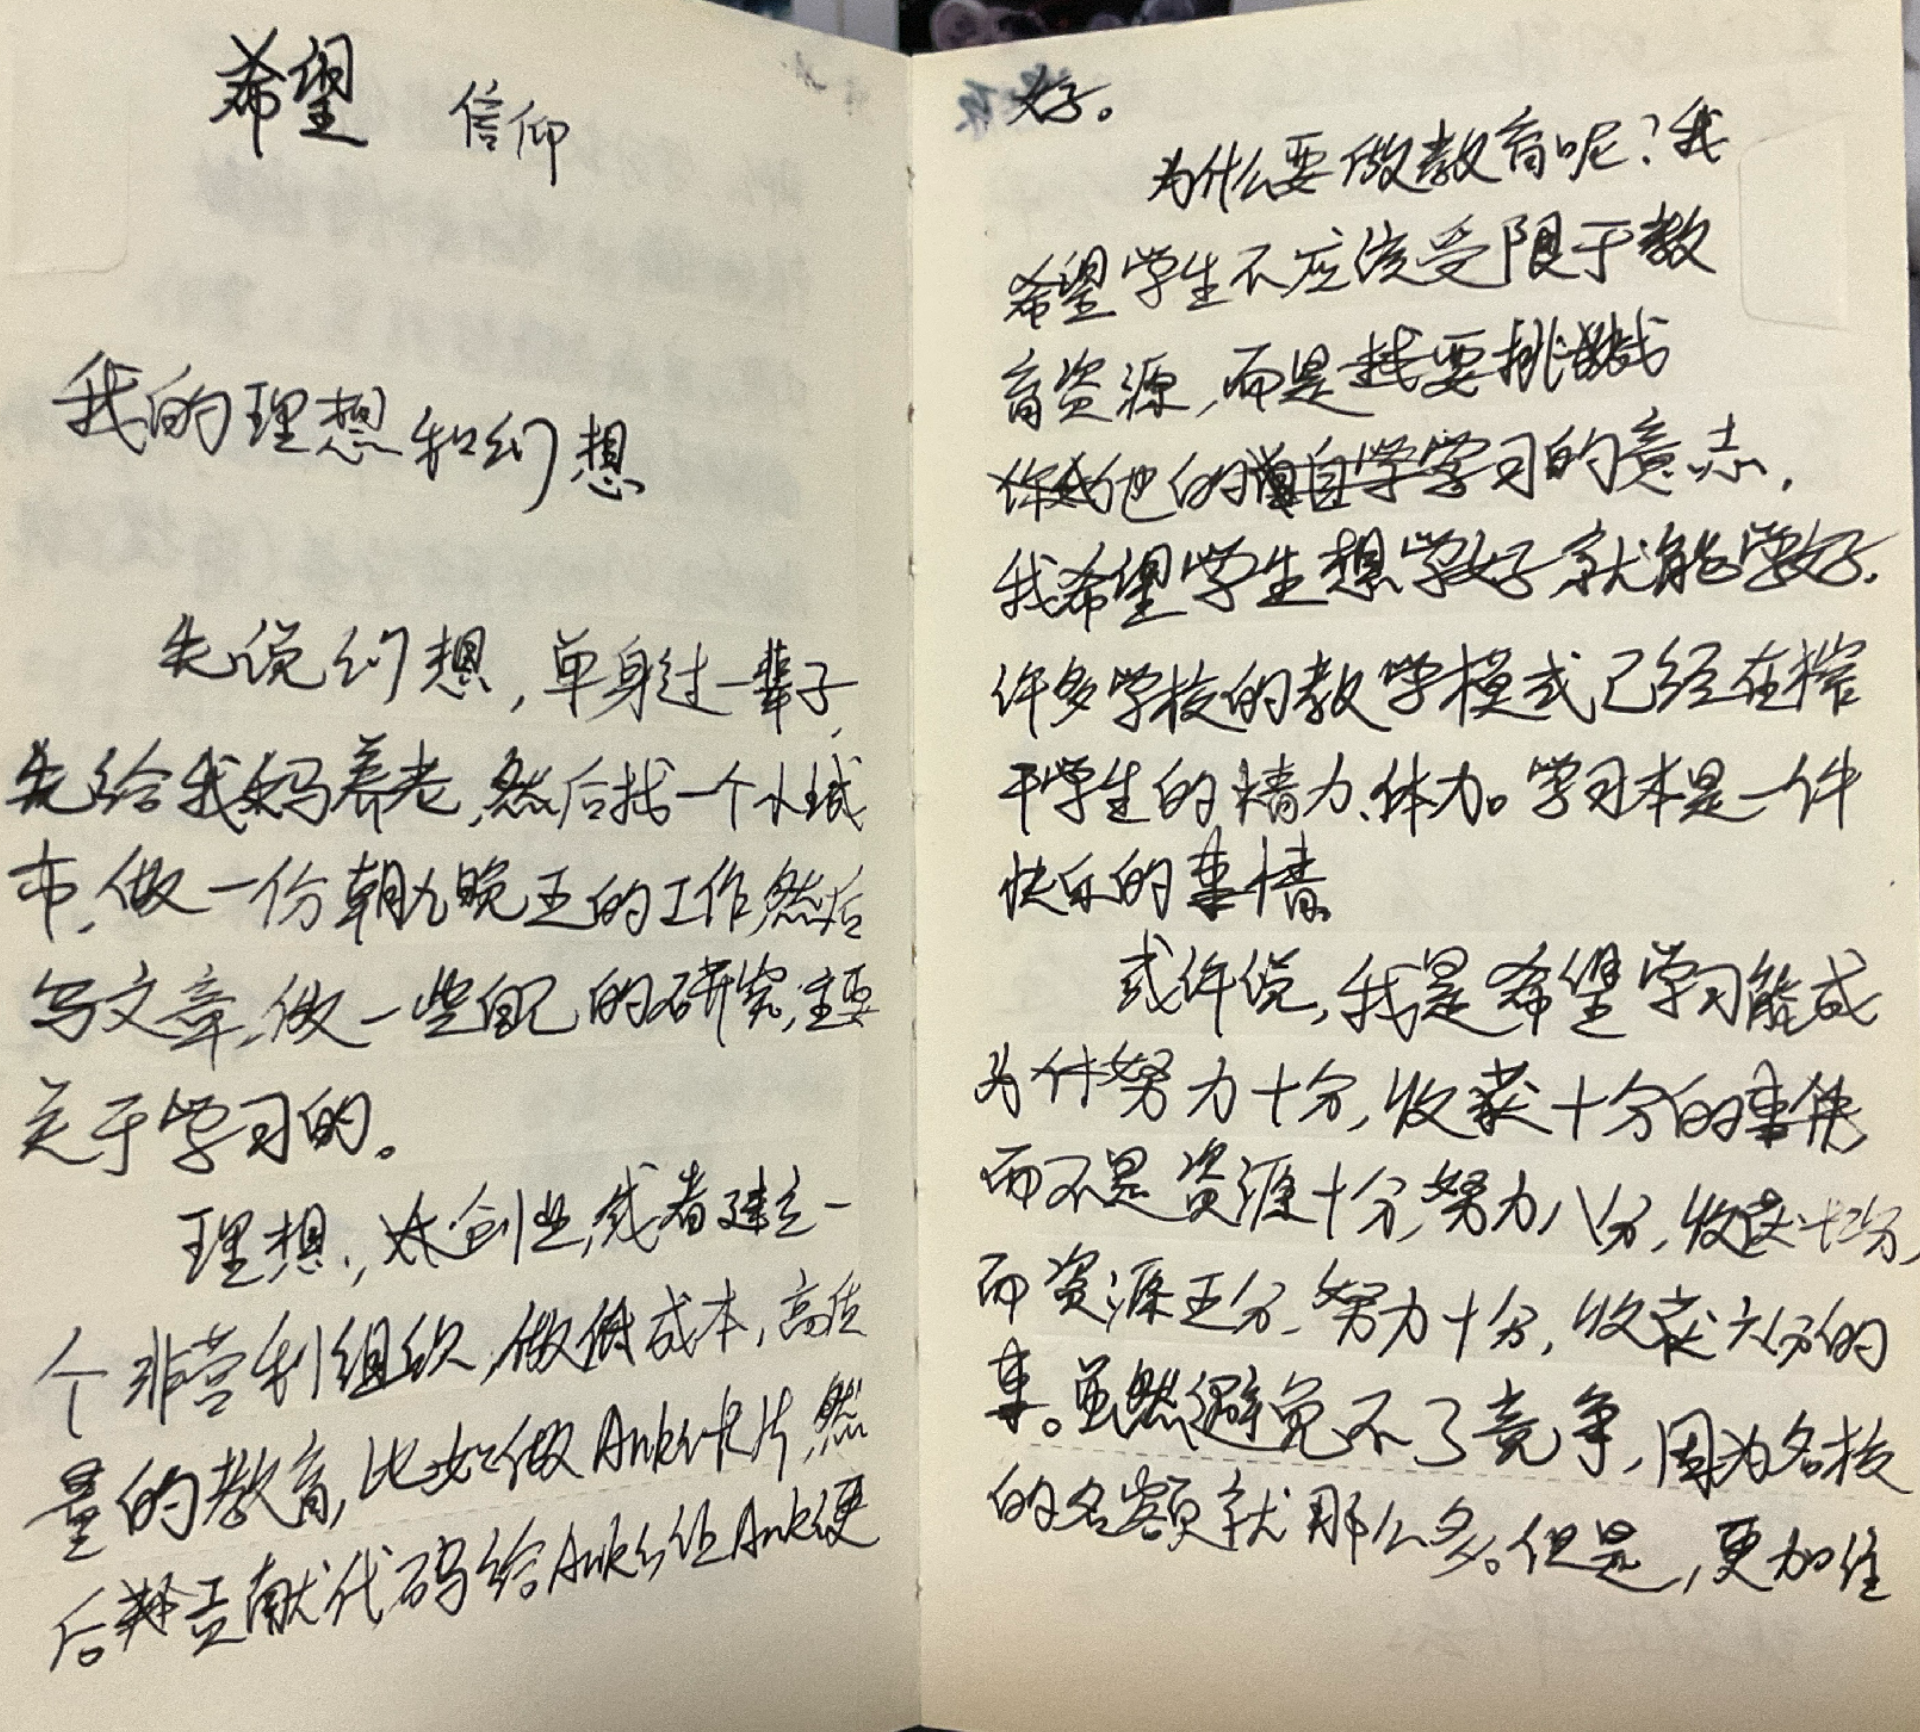 希望 信仰
我的理想和幻想
先说幻想，单身过一辈子，
先给我妈养老，然后找一个小城
市，做一份朝九晚五的工作，然后
写文章，做一些自己的研究，主要
关于学习的。
理想，创业，或者建立一
个非营利组织，做低成本，高质
量的教育，比如做Anki卡片，然
后贡献代码给Anki，让Anki更
好。
为什么要做教育呢？我
希望学生不应该受限于教
育资源，而是
他的学习的意志，
我希望学生想学好就能学好。
许多学校的教学模式已经在榨
干学生的精力、体力。学习本是一件
快乐的事情。
或许说，我是希望学习能成
为件努力十分，收获十分的事情，
而不是资源十分，努力八分，收获十分，
而资源五分，努力十分，收获六分的
事。虽然避免不了竞争，因为名校
的名额就那么多。但是，更加